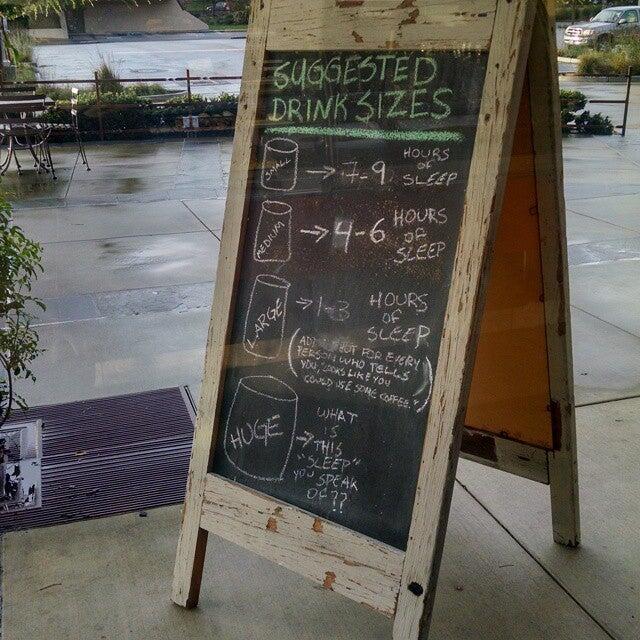 SUGGESTED
DRINK SIZES
SMALL → 7-9 HOURS
OF
SLEEP
MEDIUM → 4-6 HOURS
OF
SLEEP
LARGE → 1-3 HOURS
OF
SLEEP
(ADD SHOT FOR EVERY
PERSON WHO TELLS
YOU, "LOOKS LIKE YOU
COULD USE SOME COFFEE.")
HUGE → WHAT
IS
THIS
"SLEEP"
YOU SPEAK
OF??